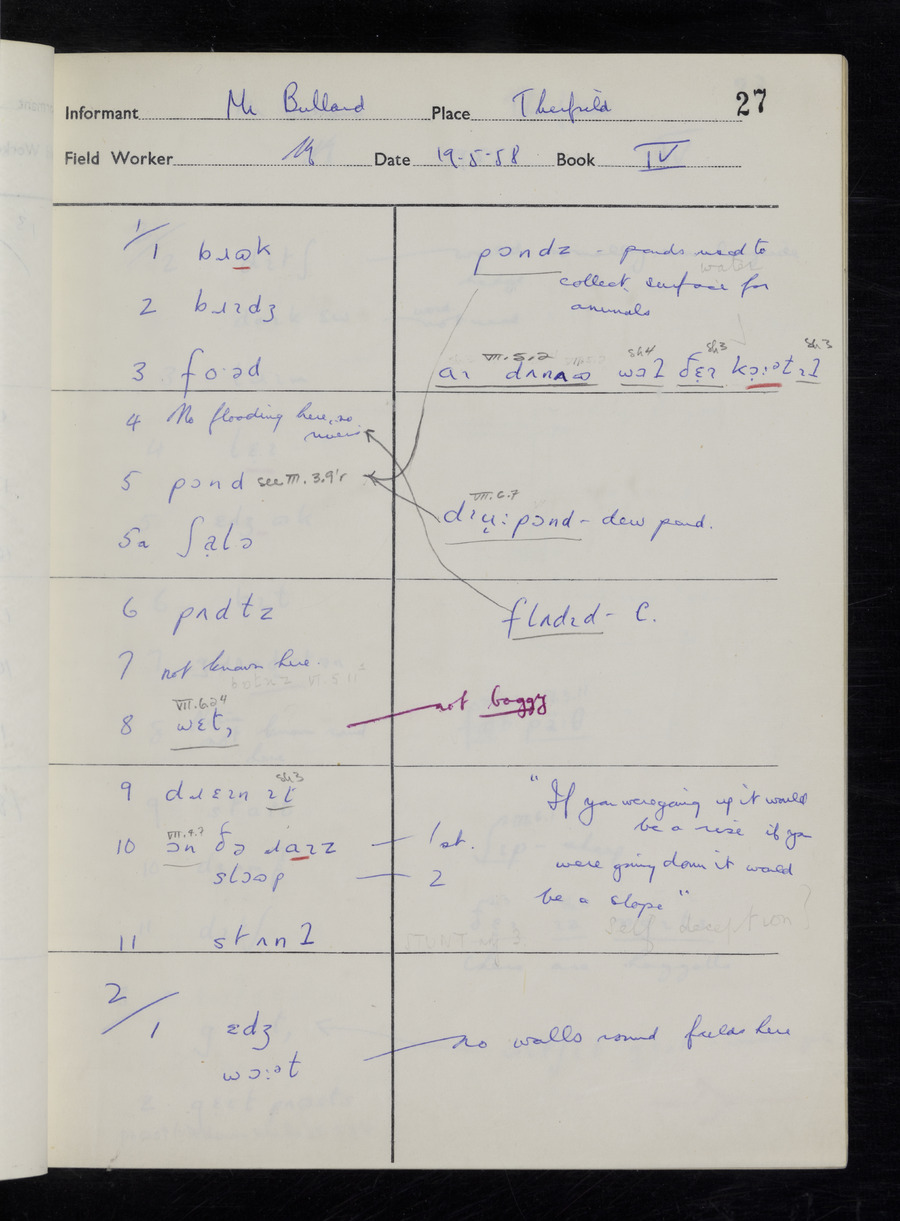 27
Informant Mr Bullard Place Therfield
Field Worker Date 19-5-58 Book IV
1/
1 bɹɷk
2 bɹɪdʒ
3 fo·əd
pɔndz - ponds used to
collect surface water for
animals
VII.5.2 sh4 sh3 sh3
4 No flooding here, so
rivers
5 pɔnd see III.3.9'r
VII.6.7
pɔnd - dew pond.
5a ʃalə
6 pʌdɫz
flʌdɪd - C.
7 not known here.
VII.6.24
8 wɛt,
not boggy
sh3
9 dɹɛɪn ɪt
VII.4.7
10 ɔn ðə ɹaɪz — 1st.
slɔəp — 2
"If you were going up it would
be a rise if you
were going down it would
be a slope"
self-deception?
11 stʌnɪ
2/
1 ɛdʒ
wɔ:ət
no walls round fields here